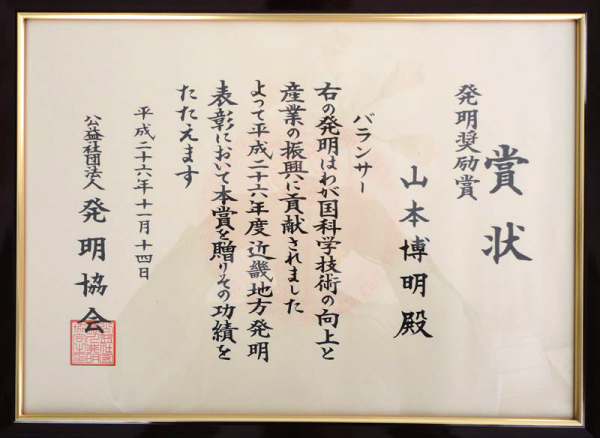 賞状
発明奨励賞
山本博明殿
バランサー
右の発明はわが国科学技術の向上と
産業の振興に貢献されました
よって平成二十六年度近畿地方発明
表彰において本賞を贈りその功績を
たたえます
平成二十六年十一月十四日
公益社団法人 発明協会